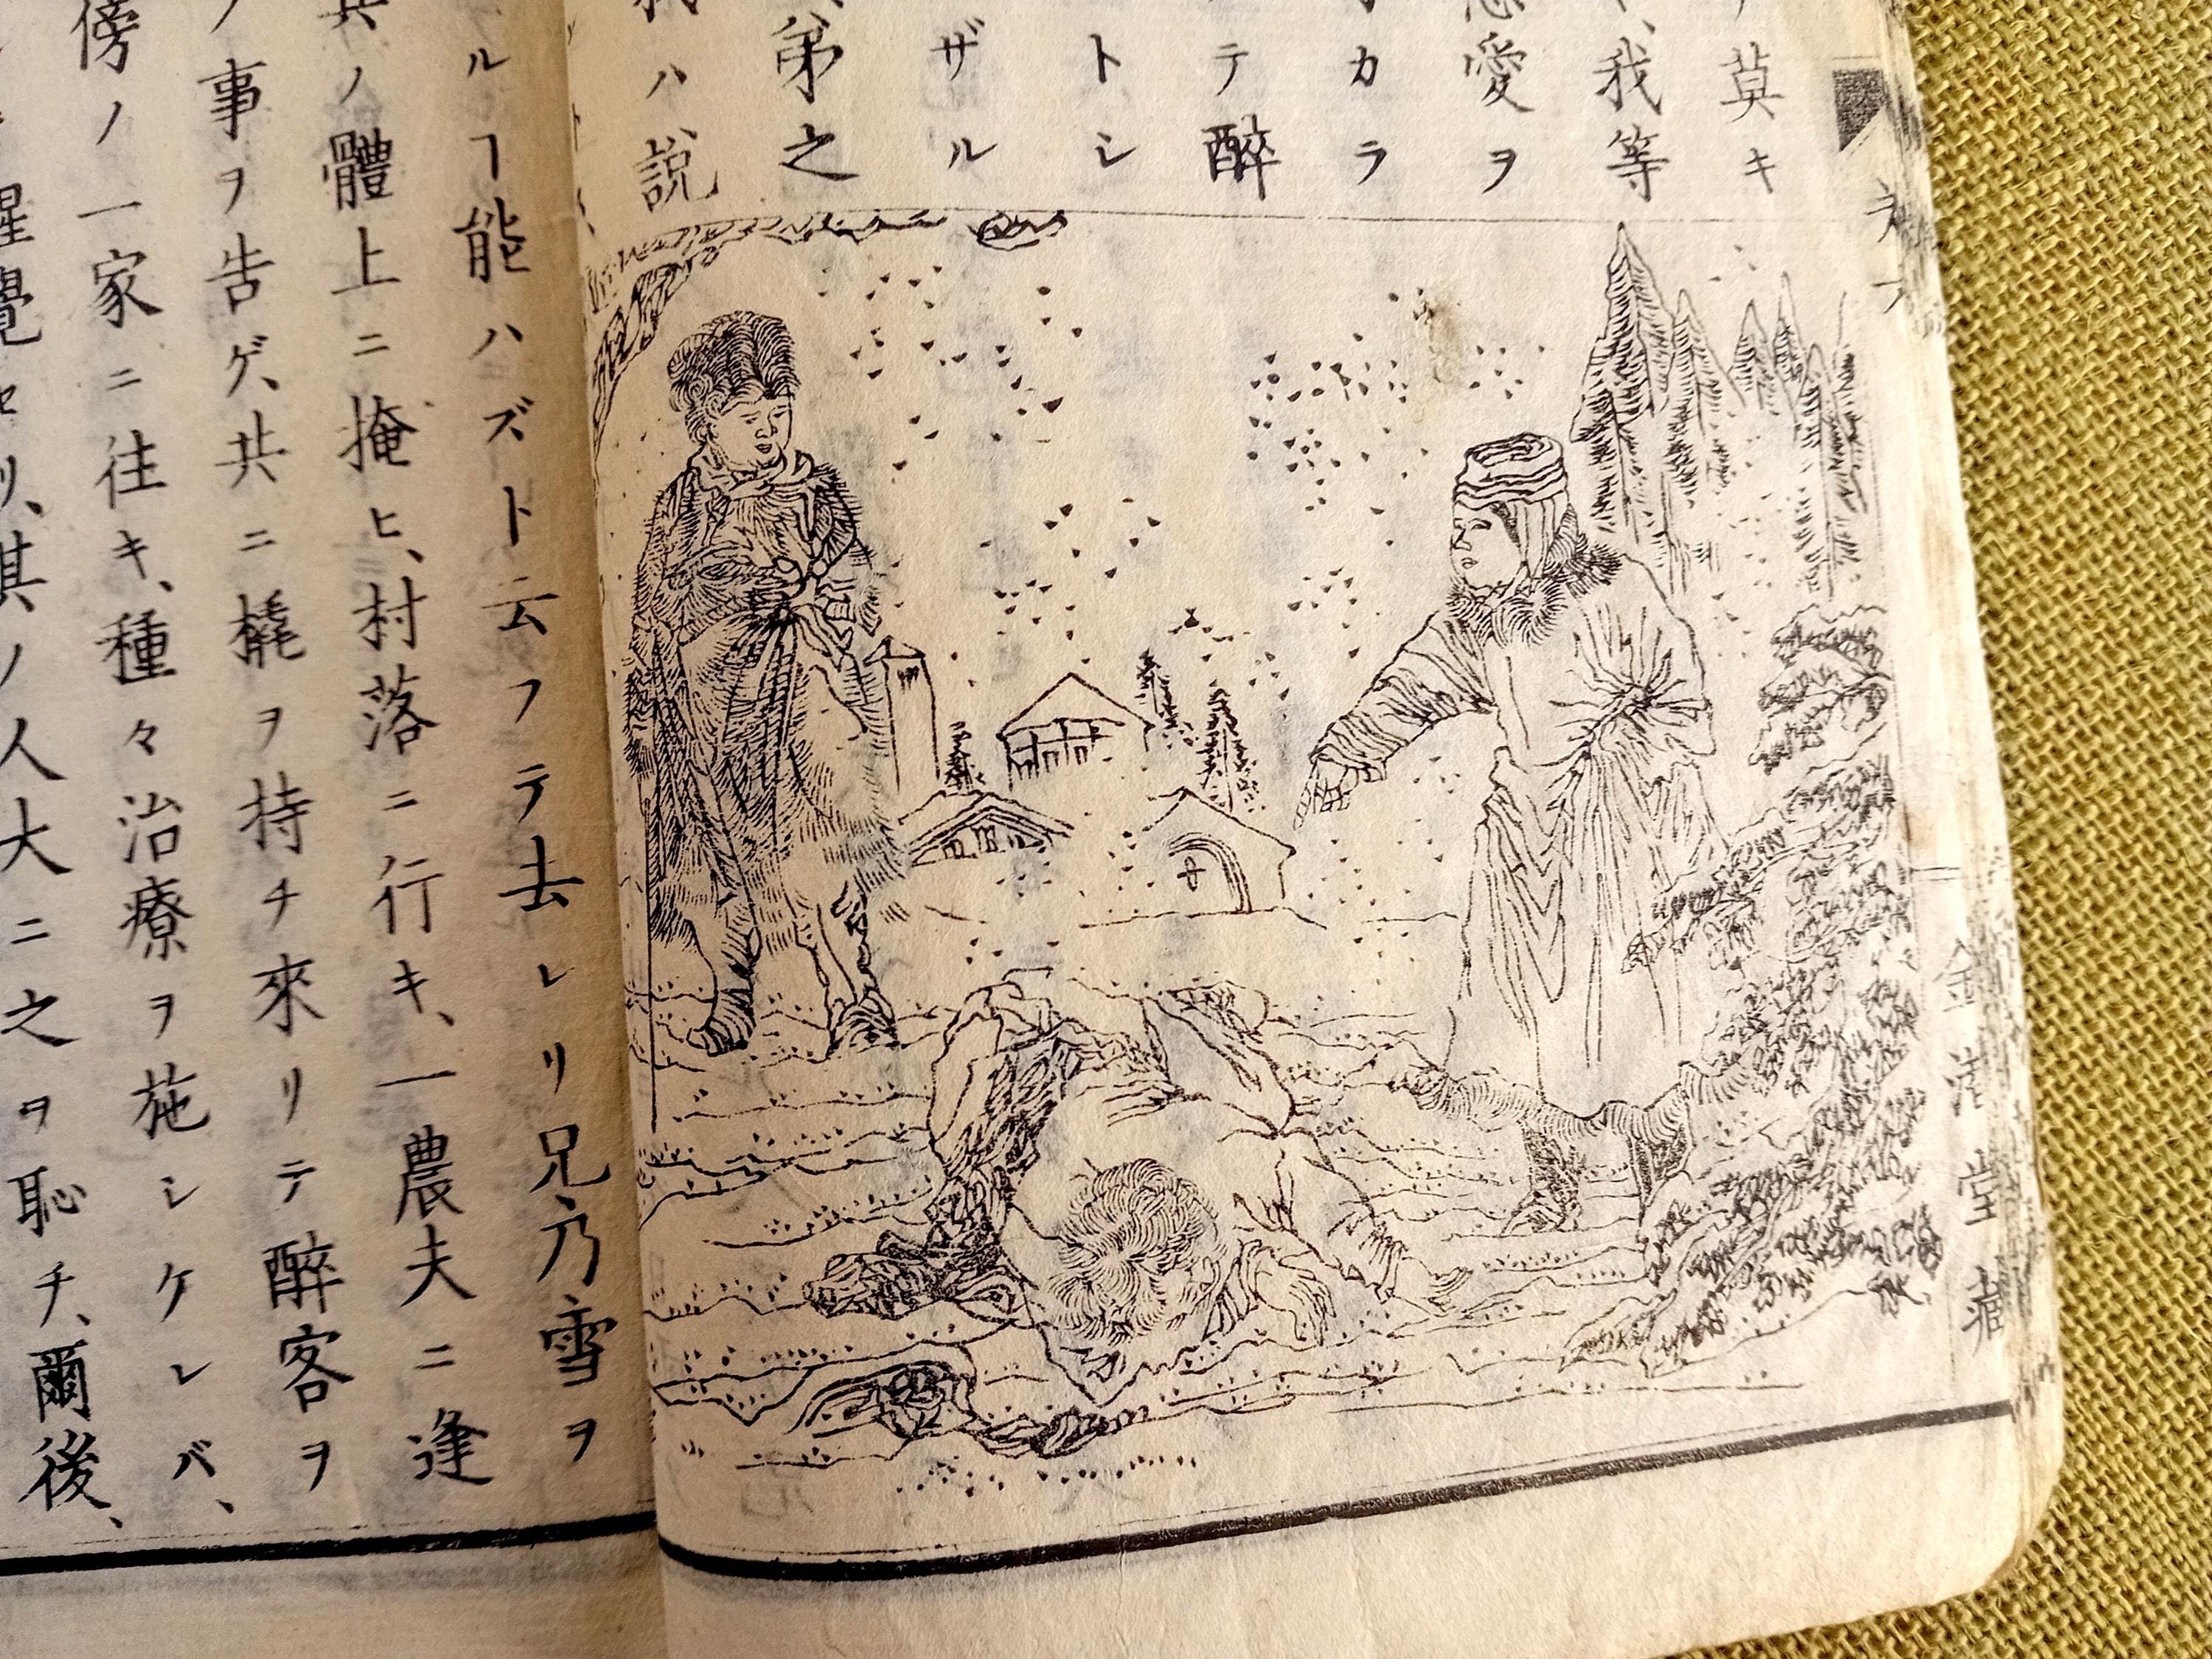 莫キ
我等
愛ヲ
カラ
テ醉
トシ
ザル
弟之
ハ說
金港堂藏
ルヿ能ハズト云フテ去レリ兄乃雪ヲ
ノ體上ニ掩ヒ、村落ニ行キ、一農夫ニ逢
ノ事ヲ告ゲ、共ニ橇ヲ持チ來リテ醉客ヲ
傍ノ一家ニ往キ、種々治療ヲ施シケレバ、
醒覺セリ、其ノ人大ニ之ヲ恥チ、爾後、